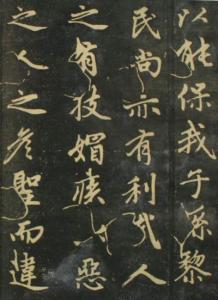 以能保我子孫黎
民尚亦有利哉人
之有技媢疾以惡
之人之彥聖而違